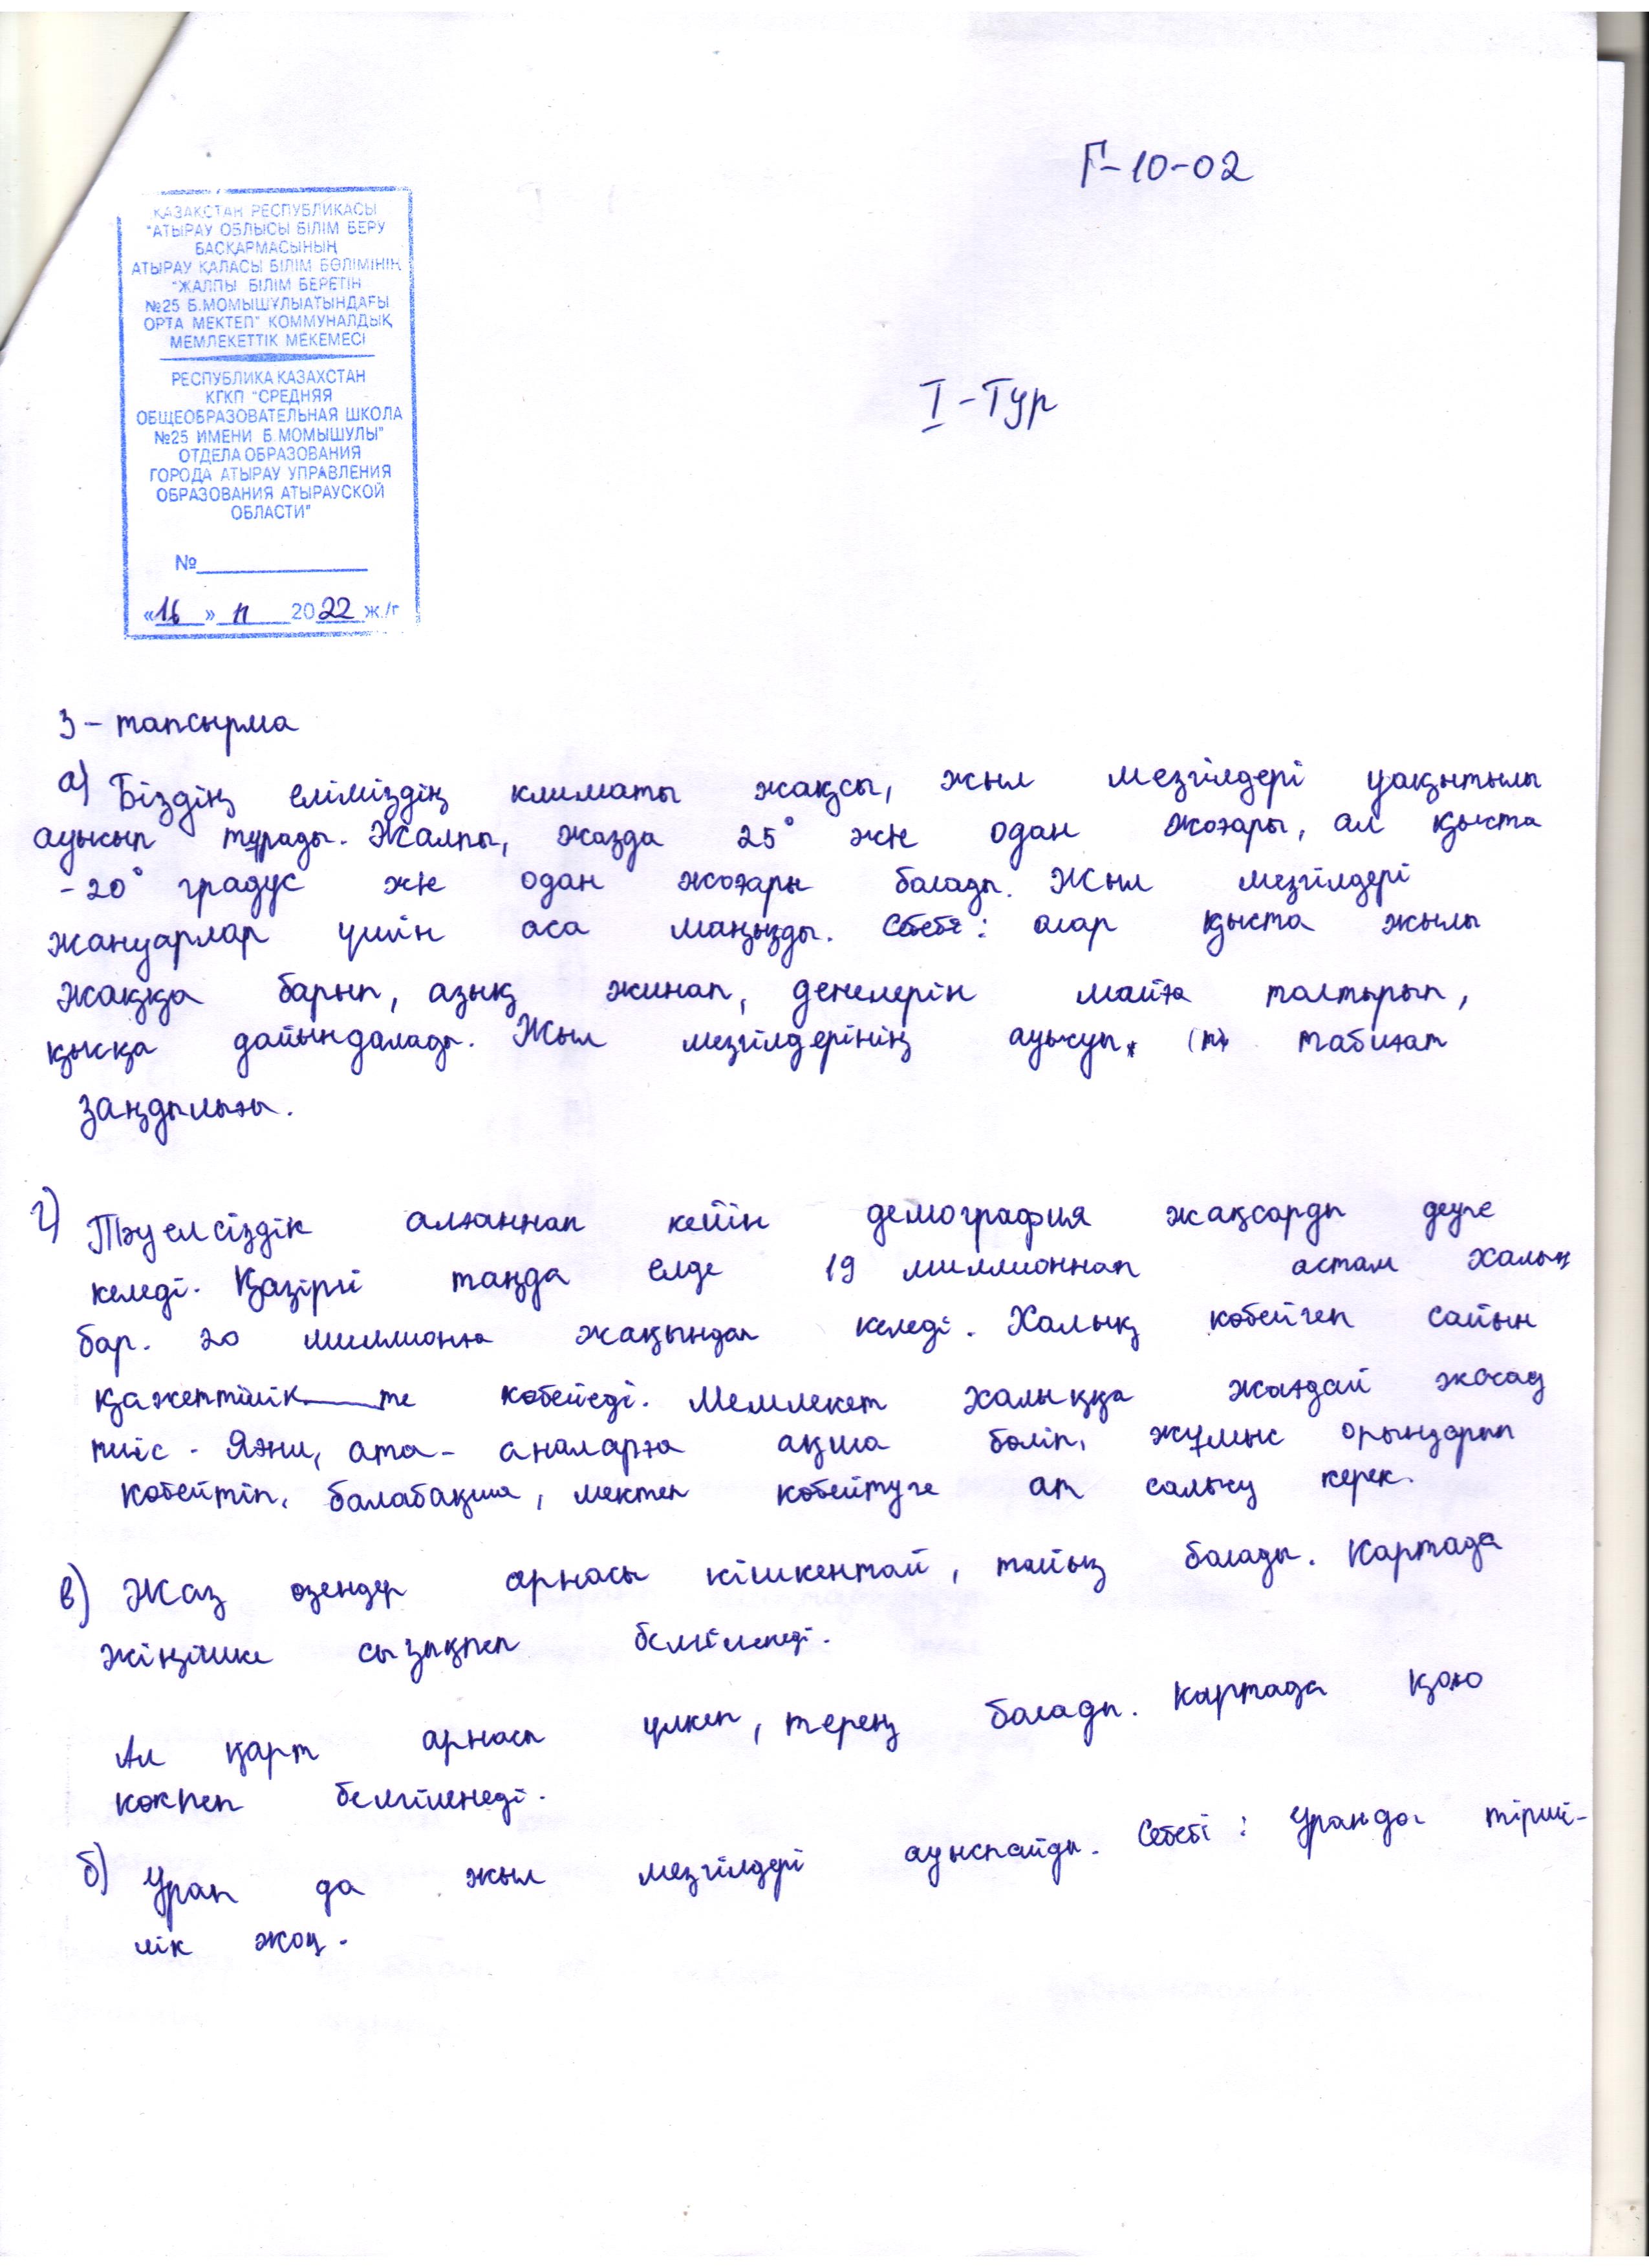 Г-10-02
ҚАЗАҚСТАН РЕСПУБЛИКАСЫ
"АТЫРАУ ОБЛЫСЫ БІЛІМ БЕРУ
БАСҚАРМАСЫНЫҢ
АТЫРАУ ҚАЛАСЫ БІЛІМ БӨЛІМІНІҢ
"ЖАЛПЫ БІЛІМ БЕРЕТІН
№25 Б.МОМЫШҰЛЫАТЫНДАҒЫ
ОРТА МЕКТЕП" КОММУНАЛДЫҚ
МЕМЛЕКЕТТІК МЕКЕМЕСІ
РЕСПУБЛИКА КАЗАХСТАН
КГКП "СРЕДНЯЯ
ОБЩЕОБРАЗОВАТЕЛЬНАЯ ШКОЛА
№25 ИМЕНИ Б.МОМЫШУЛЫ"
ОТДЕЛА ОБРАЗОВАНИЯ
ГОРОДА АТЫРАУ УПРАВЛЕНИЯ
ОБРАЗОВАНИЯ АТЫРАУСКОЙ
ОБЛАСТИ"
№
«16» 11 2022 ж./г
I-Тур
3-тапсырма
а) Біздің еліміздің климаты жақсы, жыл мезгілдері уақытылы
ауысып тұрады. Жалпы, жазда 25° жн одан жоғары, ал қыста
-20° градус жн одан жоғары болады. Жыл мезгілдері
жануарлар үшін аса маңызды. Себебі: олар қыста жылы
жаққа барып, азық жинап, денелерін майға толтырып,
қысқа дайындалады. Жыл мезгілдерінің ауысуы табиғат
заңдылығы.
г) Тәуелсіздік алғаннан кейін демография жақсарды деуге
келеді. Қазіргі таңда елде 19 миллионнан астам халық
бар. 20 миллионға жақындап келеді. Халық көбейген сайын
қажеттілік те көбейеді. Мемлекет халыққа жағдай жасау
тиіс. Яғни, ата-аналарға ақша бөліп, жұмыс орындарын
көбейтіп, балабақша, мектеп көбейтуге ат салысу керек.
в) Жас өзендер арнасы кішкентай, тайыз болады. Картада
жіңішке сызықпен белгіленеді.
Ал қарт арнасы үлкен, терең болады. Картада қою
көкпен белгіленеді.
б) Уран да жыл мезгілдері ауыспайды. Себебі: Уранда тірші-
лік жоқ.